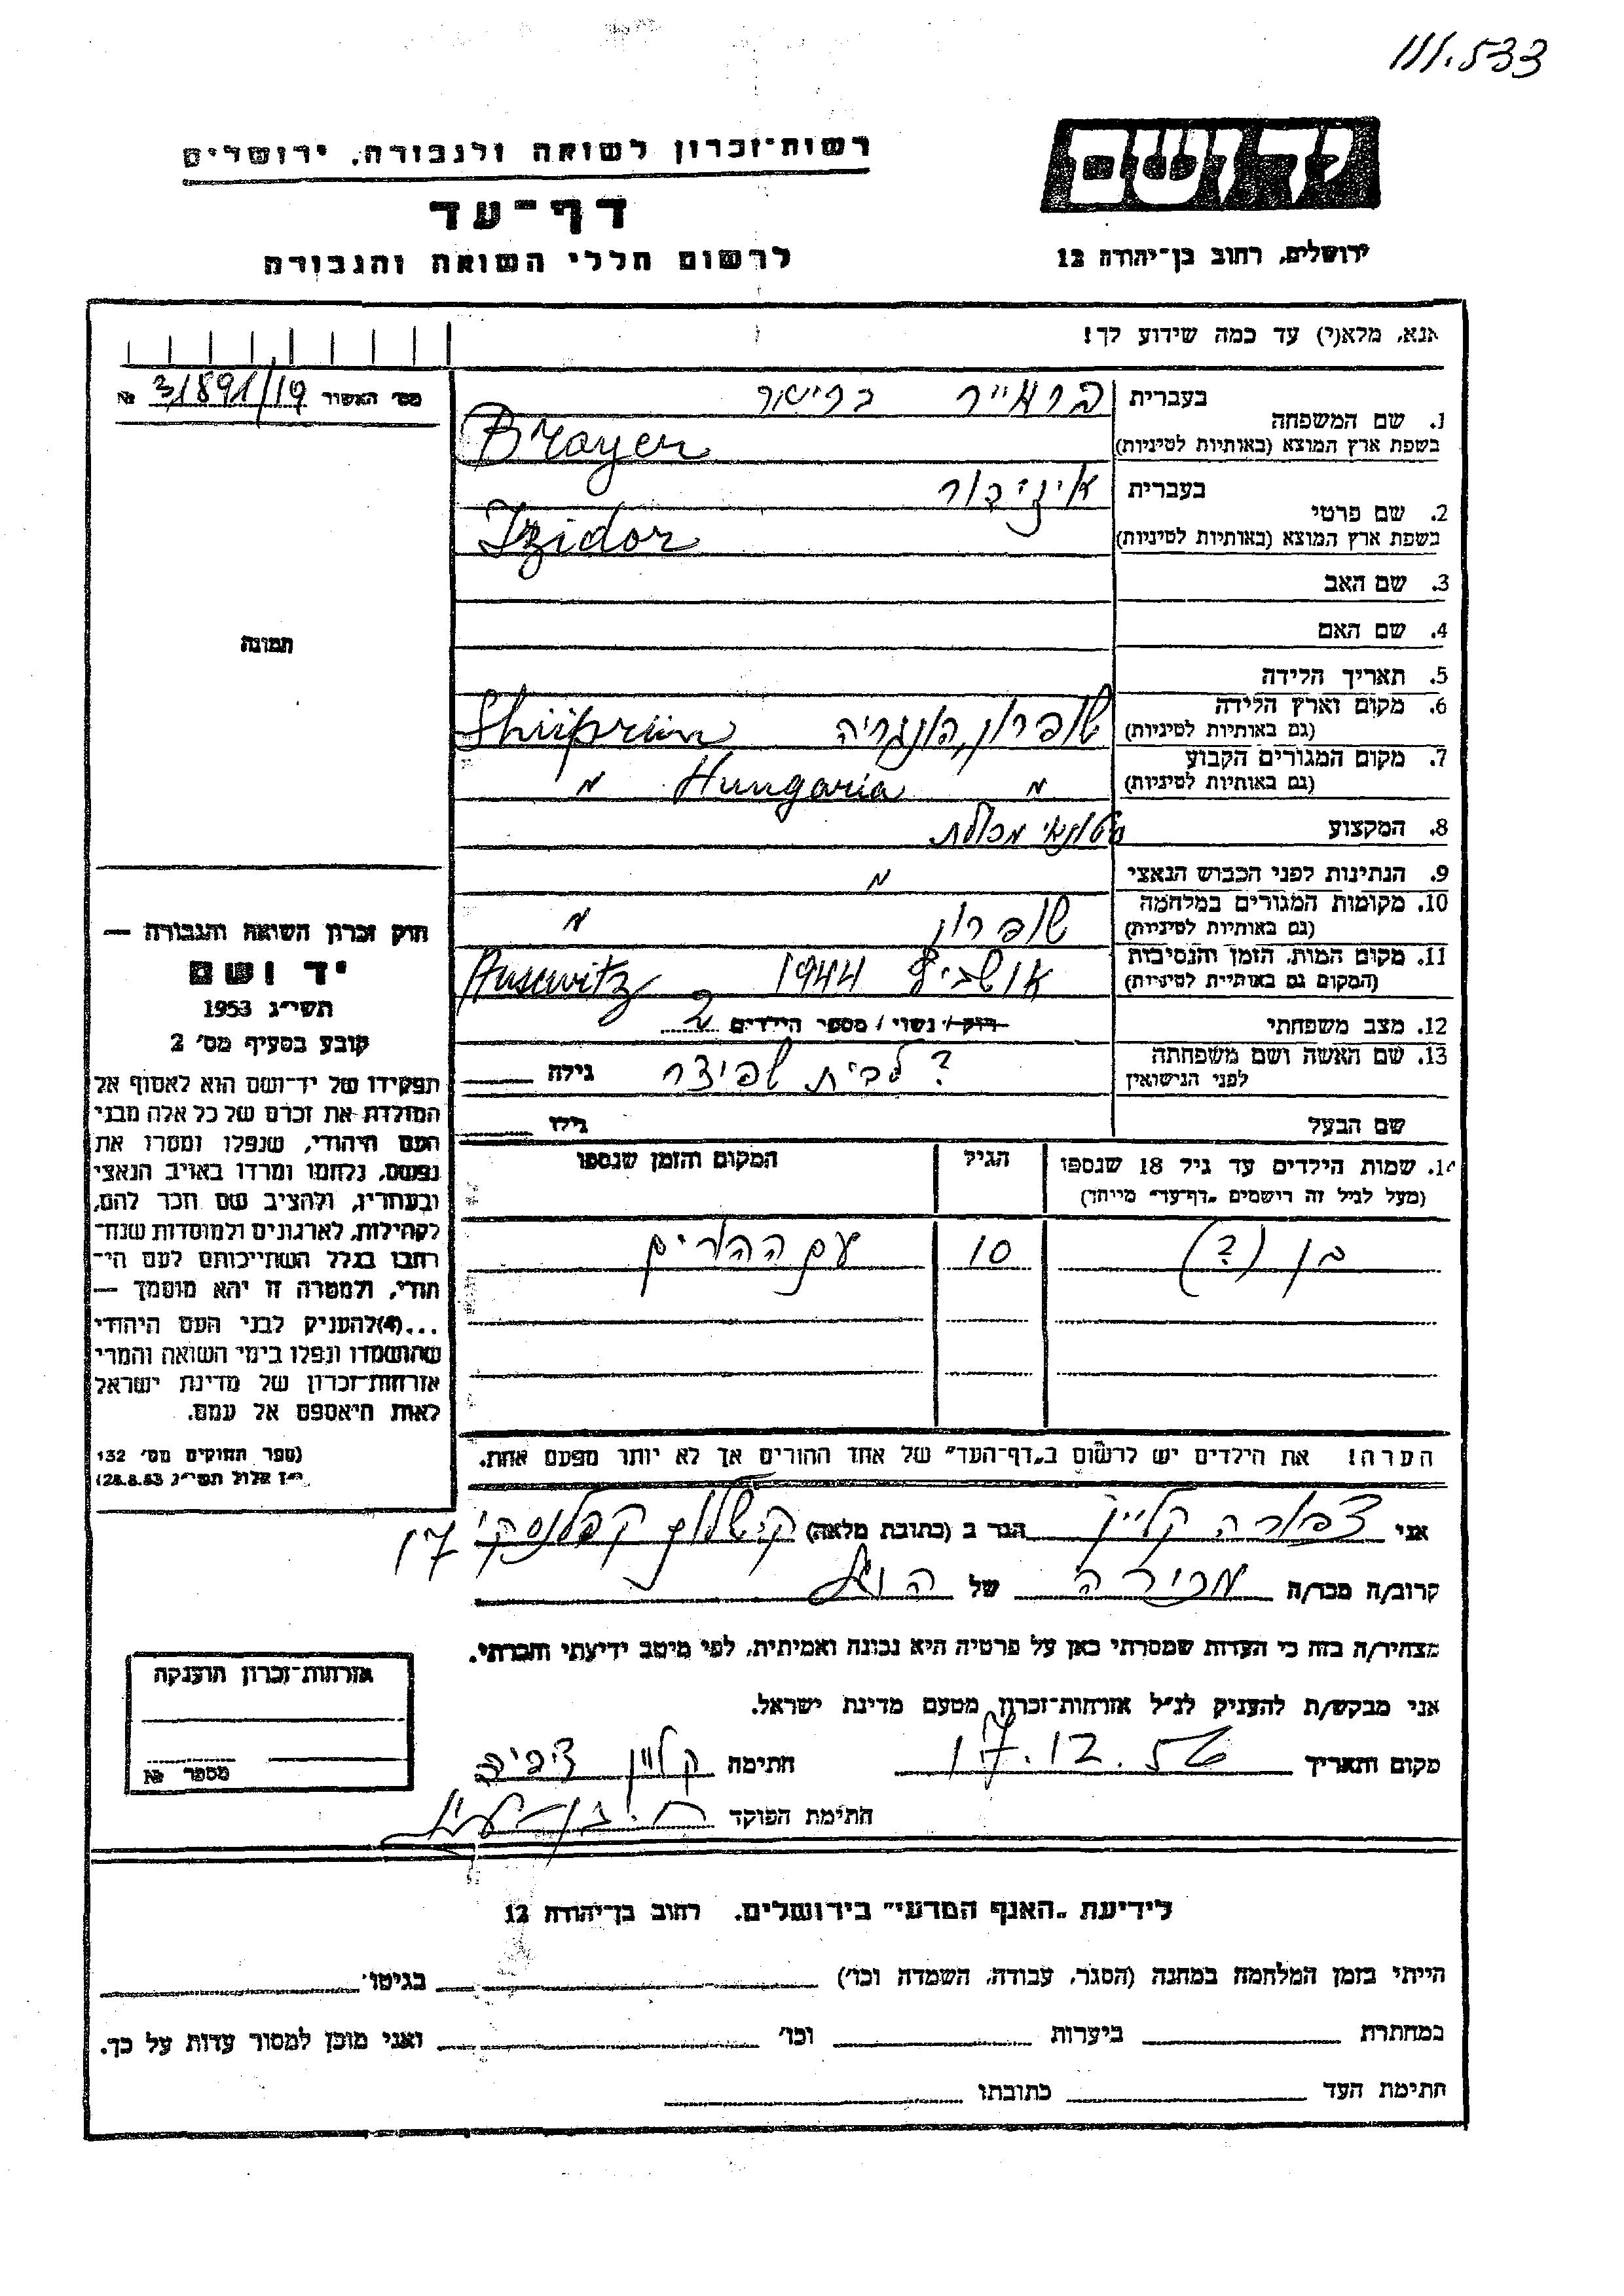 111.533
יד ושם
רשות־זכרון לשואה ולגבורה, ירושלים
דף־עד
לרשום חללי השואה והגבורה
ירושלים, רחוב בן־יהודה 12
אנא, מלא(י) עד כמה שידוע לך!
מס׳ האשור 31891/19 №
בעברית
1. שם המשפחה
בשפת ארץ המוצא (באותיות לטיניות)
בראייר
Brayer
בעברית
2. שם פרטי
בשפת ארץ המוצא (באותיות לטיניות)
איזידור
Izidor
3. שם האב
4. שם האם
5. תאריך הלידה
6. מקום וארץ הלידה
(גם באותיות לטיניות)
שופרון, הונגריה Shüprün
7. מקום המגורים הקבוע
(גם באותיות לטיניות)
״ Hungaria ״
8. המקצוע
מכולת
9. הנתינות לפני הכבוש הנאצי
״
10. מקומות המגורים במלחמה
(גם באותיות לטיניות)
שופרון ״
11. מקום המות, הזמן והנסיבות
(המקום גם באותיות לטיניות)
אושביץ 1944 Auscwitz
12. מצב משפחתי
רוק / נשוי / מספר הילדים 2
13. שם האשה ושם משפחתה
לפני הנישואין
? לבית שפיצר גילה
שם הבעל גילו
14. שמות הילדים עד גיל 18 שנספו
(מעל לגיל זה רושמים „דף־עד״ מיוחד)
הגיל
המקום והזמן שנספו
בן (?) 10 עם ההורים
הערה! את הילדים יש לרשום ב„דף־העד״ של אחד ההורים אך לא יותר מפעם אחת.
תמונה
חוק זכרון השואה והגבורה —
יד ושם
תשי״ג 1953
קובע בסעיף מס׳ 2
תפקידו של יד־ושם הוא לאסוף אל
המולדת את זכרם של כל אלה מבני
העם היהודי, שנפלו ומסרו את
נפשם, נלחמו ומרדו באויב הנאצי
ובעוזריו, ולהציב שם וזכר להם,
לקהילות, לארגונים ולמוסדות שנח־
רבו בגלל השתייכותם לעם הי־
הודי, ולמטרה זו יהא מוסמך —
...(4) להעניק לבני העם היהודי
שהושמדו ונפלו בימי השואה והמרי
אזרחות־זכרון של מדינת ישראל
לאות היאספם אל עמם.
(ספר החוקים מס׳ 132
י״ז אלול תשי״ג 28.8.53)
אני צפורה קליין הגר ב (כתובת מלאה) קפלנסקי 17
קרוב/ה מכר/ה מכירה של הנ״ל
מצהיר/ה בזה כי העדות שמסרתי כאן על פרטיה היא נכונה ואמיתית, לפי מיטב ידיעתי והכרתי.
אני מבקש/ת להעניק לנ״ל אזרחות־זכרון מטעם מדינת ישראל.
מקום ותאריך 17.12.56 חתימה קליין צפורה
חתימת הפוקד
אזרחות־זכרון הוענקה
מספר №
לידיעת „האגף המדעי״ בירושלים. רחוב בן־יהודה 12
הייתי בזמן המלחמה במחנה (הסגר, עבודה, השמדה וכו׳) בגיטו
במחתרת ביערות וכו׳ ואני מוכן למסור עדות על כך.
חתימת העד כתובתו